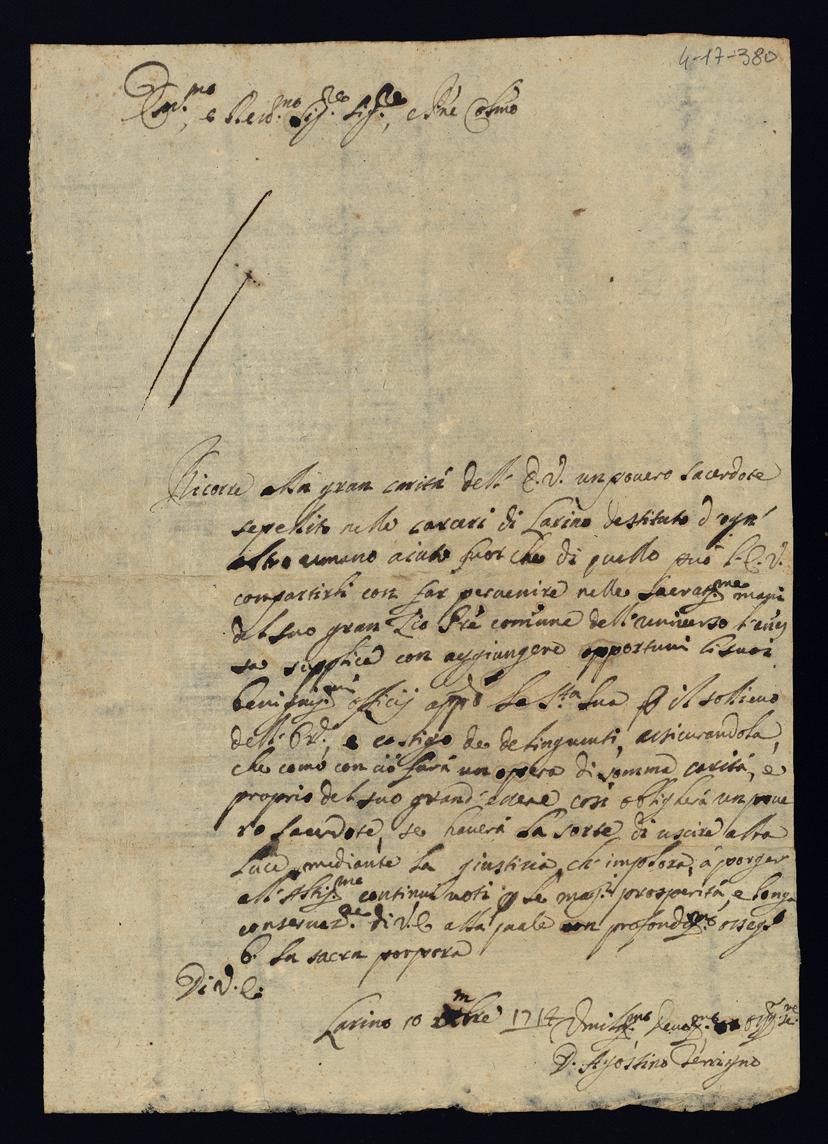 4-17-380
Em.mo, e Rev.mo Sig.re Sig.re, e P̃ne Col.mo
Ricorre alla gran carità dell' E.V. un povero sacerdote
sepellito nelle carceri di Larino destituto d'ogn'
altro umano aiuto fuor che di quello può l'E.V.
compartirli con far pervenire nelle sacrat.me mani
del suo gran Zio P̃re comune dell'universo l'
supplice con aggiungere opportuni li suoi
benignis.mi officij app.o la S.ta Sua il sollievo
dell' e castigo de delinquenti, assicurandola,
che come con ciò farà un opera di somma carità, e
proprio del suo grand' così obligherà un pove
ro sacerdote, se haverà la sorte di uscire alla
luce mediante la giustitia, ch'implora, à porger
all' Altis.mo continui voti p le mag.ri prosperità, e longa
conservaz.ne di V.E. alla quale con profondis.mo osseq.o
b. la sacra porpora
Di V.E.
Larino 10 1714 Umiliss.mo Devo.mo Oblig.mo
D. Agostino Terrigno